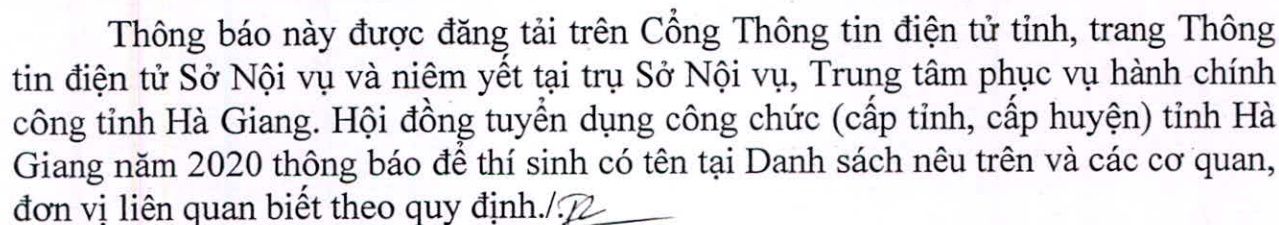 Thông báo này được đăng tải trên Cổng Thông tin điện tử tỉnh, trang Thông
tin điện tử Sở Nội vụ và niêm yết tại trụ Sở Nội vụ, Trung tâm phục vụ hành chính
công tỉnh Hà Giang. Hội đồng tuyển dụng công chức (cấp tỉnh, cấp huyện) tỉnh Hà
Giang năm 2020 thông báo để thí sinh có tên tại Danh sách nêu trên và các cơ quan,
đơn vị liên quan biết theo quy định./.